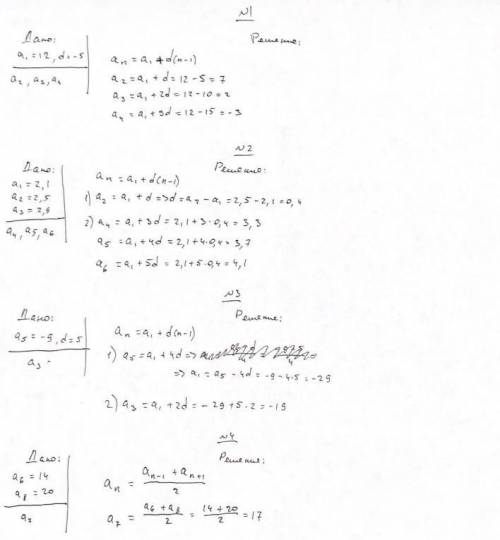 №1
Дано:
a₁ = 12, d = -5
a₂, a₃, a₄
Решение:
aₙ = a₁ + d(n-1)
a₂ = a₁ + d = 12 - 5 = 7
a₃ = a₁ + 2d = 12 - 10 = 2
a₄ = a₁ + 3d = 12 - 15 = -3
№2
Дано:
a₁ = 2,1
a₂ = 2,5
a₃ = 2,9
a₄, a₅, a₆
Решение:
aₙ = a₁ + d(n-1)
1) a₂ = a₁ + d => d = a₂ - a₁ = 2,5 - 2,1 = 0,4
2) a₄ = a₁ + 3d = 2,1 + 3·0,4 = 3,3
a₅ = a₁ + 4d = 2,1 + 4·0,4 = 3,7
a₆ = a₁ + 5d = 2,1 + 5·0,4 = 4,1
№3
Дано:
a₅ = -9, d = 5
a₃ -
Решение:
aₙ = a₁ + d(n-1)
1) a₅ = a₁ + 4d =>
=> a₁ = a₅ - 4d = -9 - 4·5 = -29
2) a₃ = a₁ + 2d = -29 + 5·2 = -19
№4
Дано:
a₆ = 14
a₈ = 20
a₇
Решение:
aₙ = (aₙ₋₁ + aₙ₊₁)/2
a₇ = (a₆ + a₈)/2 = (14 + 20)/2 = 17